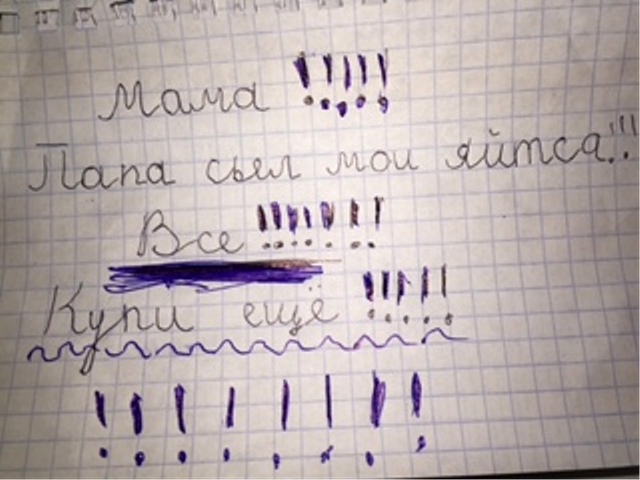 Мама !!!!!
Папа сьел мои яйтса!!!
Все !!!!!!!
Купи ещё !!!!!
!!!!!!!!